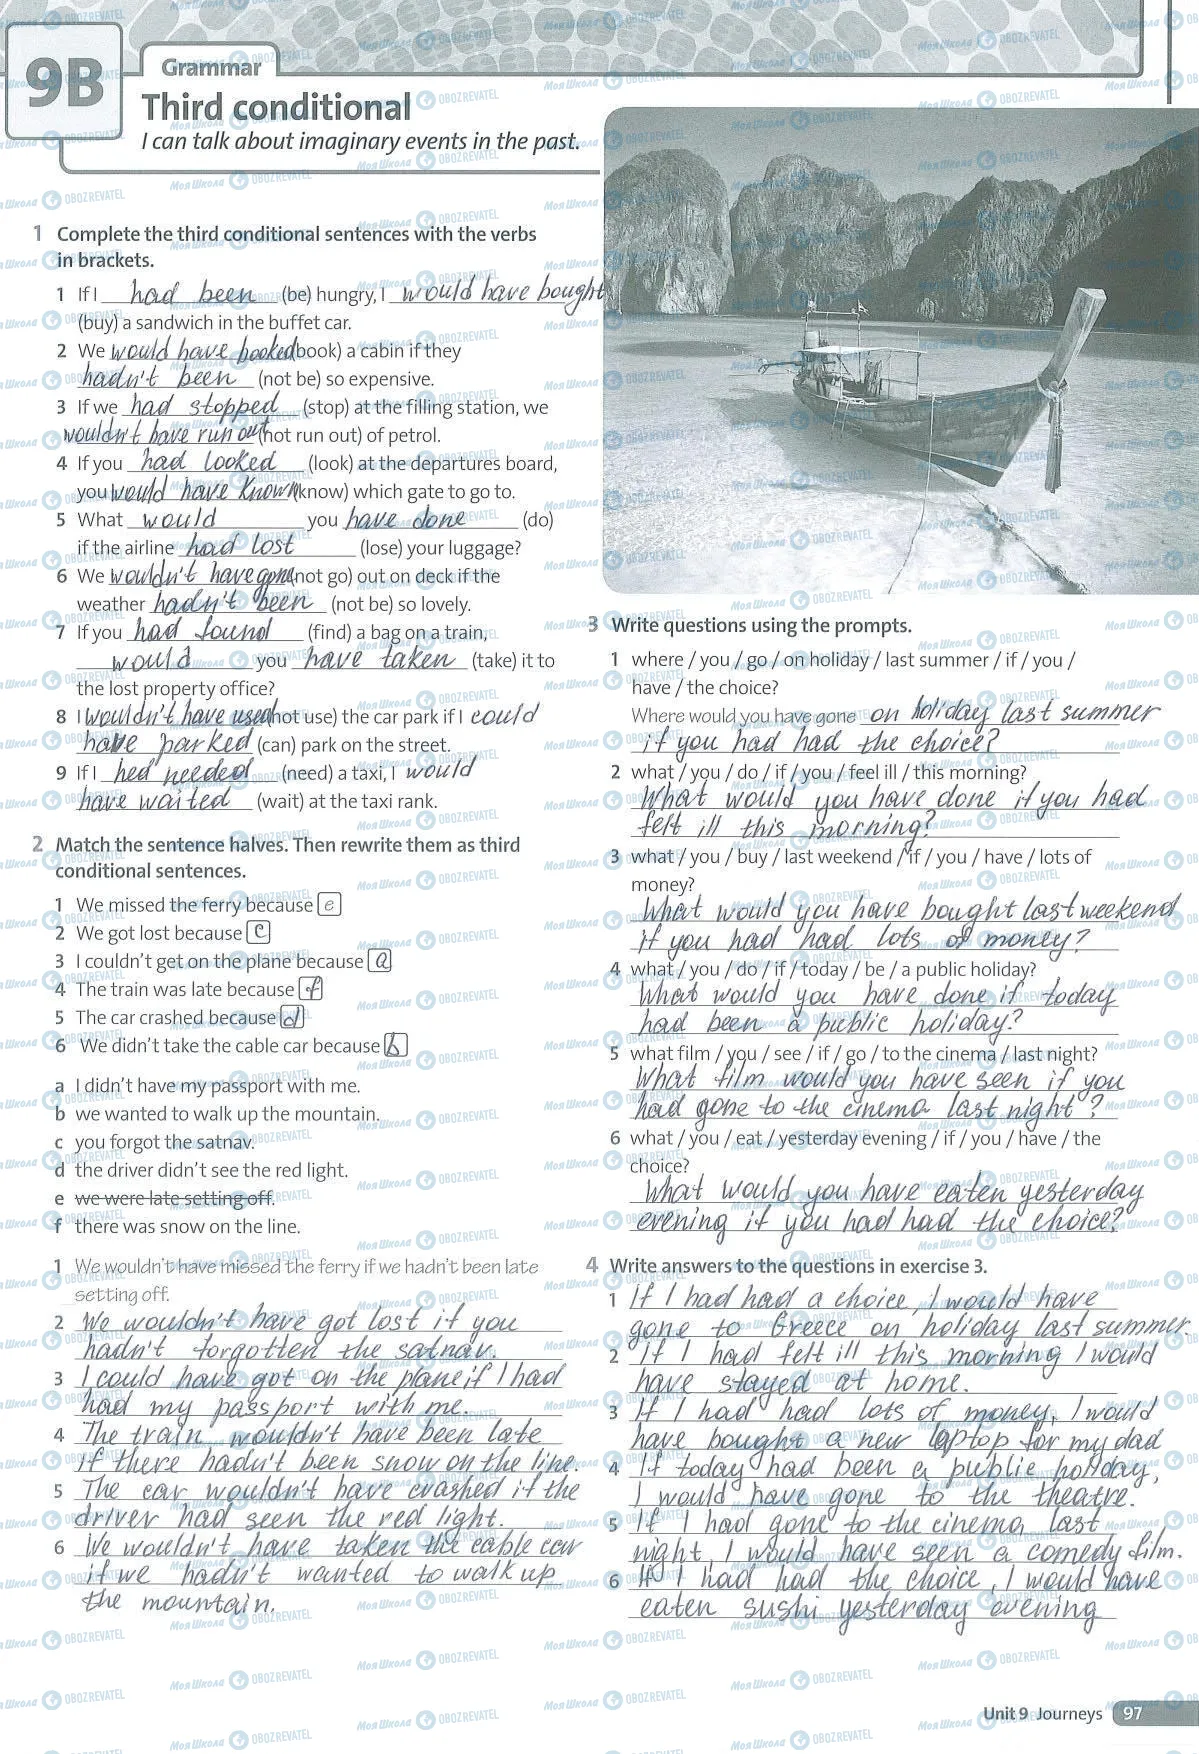 9B
Grammar
Third conditional
I can talk about imaginary events in the past.
1 Complete the third conditional sentences with the verbs
in brackets.
1 If I had been (be) hungry, I would have bought
(buy) a sandwich in the buffet car.
2 We would have booked (book) a cabin if they
hadn't been (not be) so expensive.
3 If we had stopped (stop) at the filling station, we
wouldn't have run out (not run out) of petrol.
4 If you had looked (look) at the departures board,
you would have known (know) which gate to go to.
5 What would you have done (do)
if the airline had lost (lose) your luggage?
6 We wouldn't have gone (not go) out on deck if the
weather hadn't been (not be) so lovely.
7 If you had found (find) a bag on a train,
would you have taken (take) it to
the lost property office?
8 I wouldn't have used (not use) the car park if I could
have parked (can) park on the street.
9 If I hed needed (need) a taxi, I would
have waited (wait) at the taxi rank.
2 Match the sentence halves. Then rewrite them as third
conditional sentences.
1 We missed the ferry because e
2 We got lost because c
3 I couldn't get on the plane because a
4 The train was late because f
5 The car crashed because d
6 We didn't take the cable car because b
a I didn't have my passport with me.
b we wanted to walk up the mountain.
c you forgot the satnav.
d the driver didn't see the red light.
e we were late setting off.
f there was snow on the line.
1 We wouldn't have missed the ferry if we hadn't been late
setting off.
2 We wouldn't have got lost if you
hadn't forgotten the satnav.
3 I could have got on the plane if I had
had my passport with me.
4 The train wouldn't have been late
if there hadn't been snow on the line.
5 The car wouldn't have crashed if the
driver had seen the red light.
6 We wouldn't have taken the cable car
if we hadn't wanted to walk up
the mountain.
3 Write questions using the prompts.
1 where / you / go / on holiday / last summer / if / you /
have / the choice?
Where would you have gone on holiday last summer
if you had had the choice?
2 what / you / do / if / you / feel ill / this morning?
What would you have done if you had
felt ill this morning?
3 what / you / buy / last weekend / if / you / have / lots of
money?
What would you have bought last weekend
if you had had lots of money?
4 what / you / do / if / today / be / a public holiday?
What would you have done if today
had been a public holiday?
5 what film / you / see / if / go / to the cinema / last night?
What film would you have seen if you
had gone to the cinema last night?
6 what / you / eat / yesterday evening / if / you / have / the
choice?
What would you have eaten yesterday
evening if you had had the choice?
4 Write answers to the questions in exercise 3.
1 If I had had a choice, I would have
gone to Greece on holiday last summer.
2 If I had felt ill this morning I would
have stayed at home.
3 If I had had lots of money, I would
have bought a new laptop for my dad
4 If today had been a public holiday,
I would have gone to the theatre.
5 If I had gone to the cinema last
night, I would have seen a comedy film.
6 If I had had the choice, I would have
eaten sushi yesterday evening
Unit 9 Journeys 97
МояШкола OBOZREVATEL